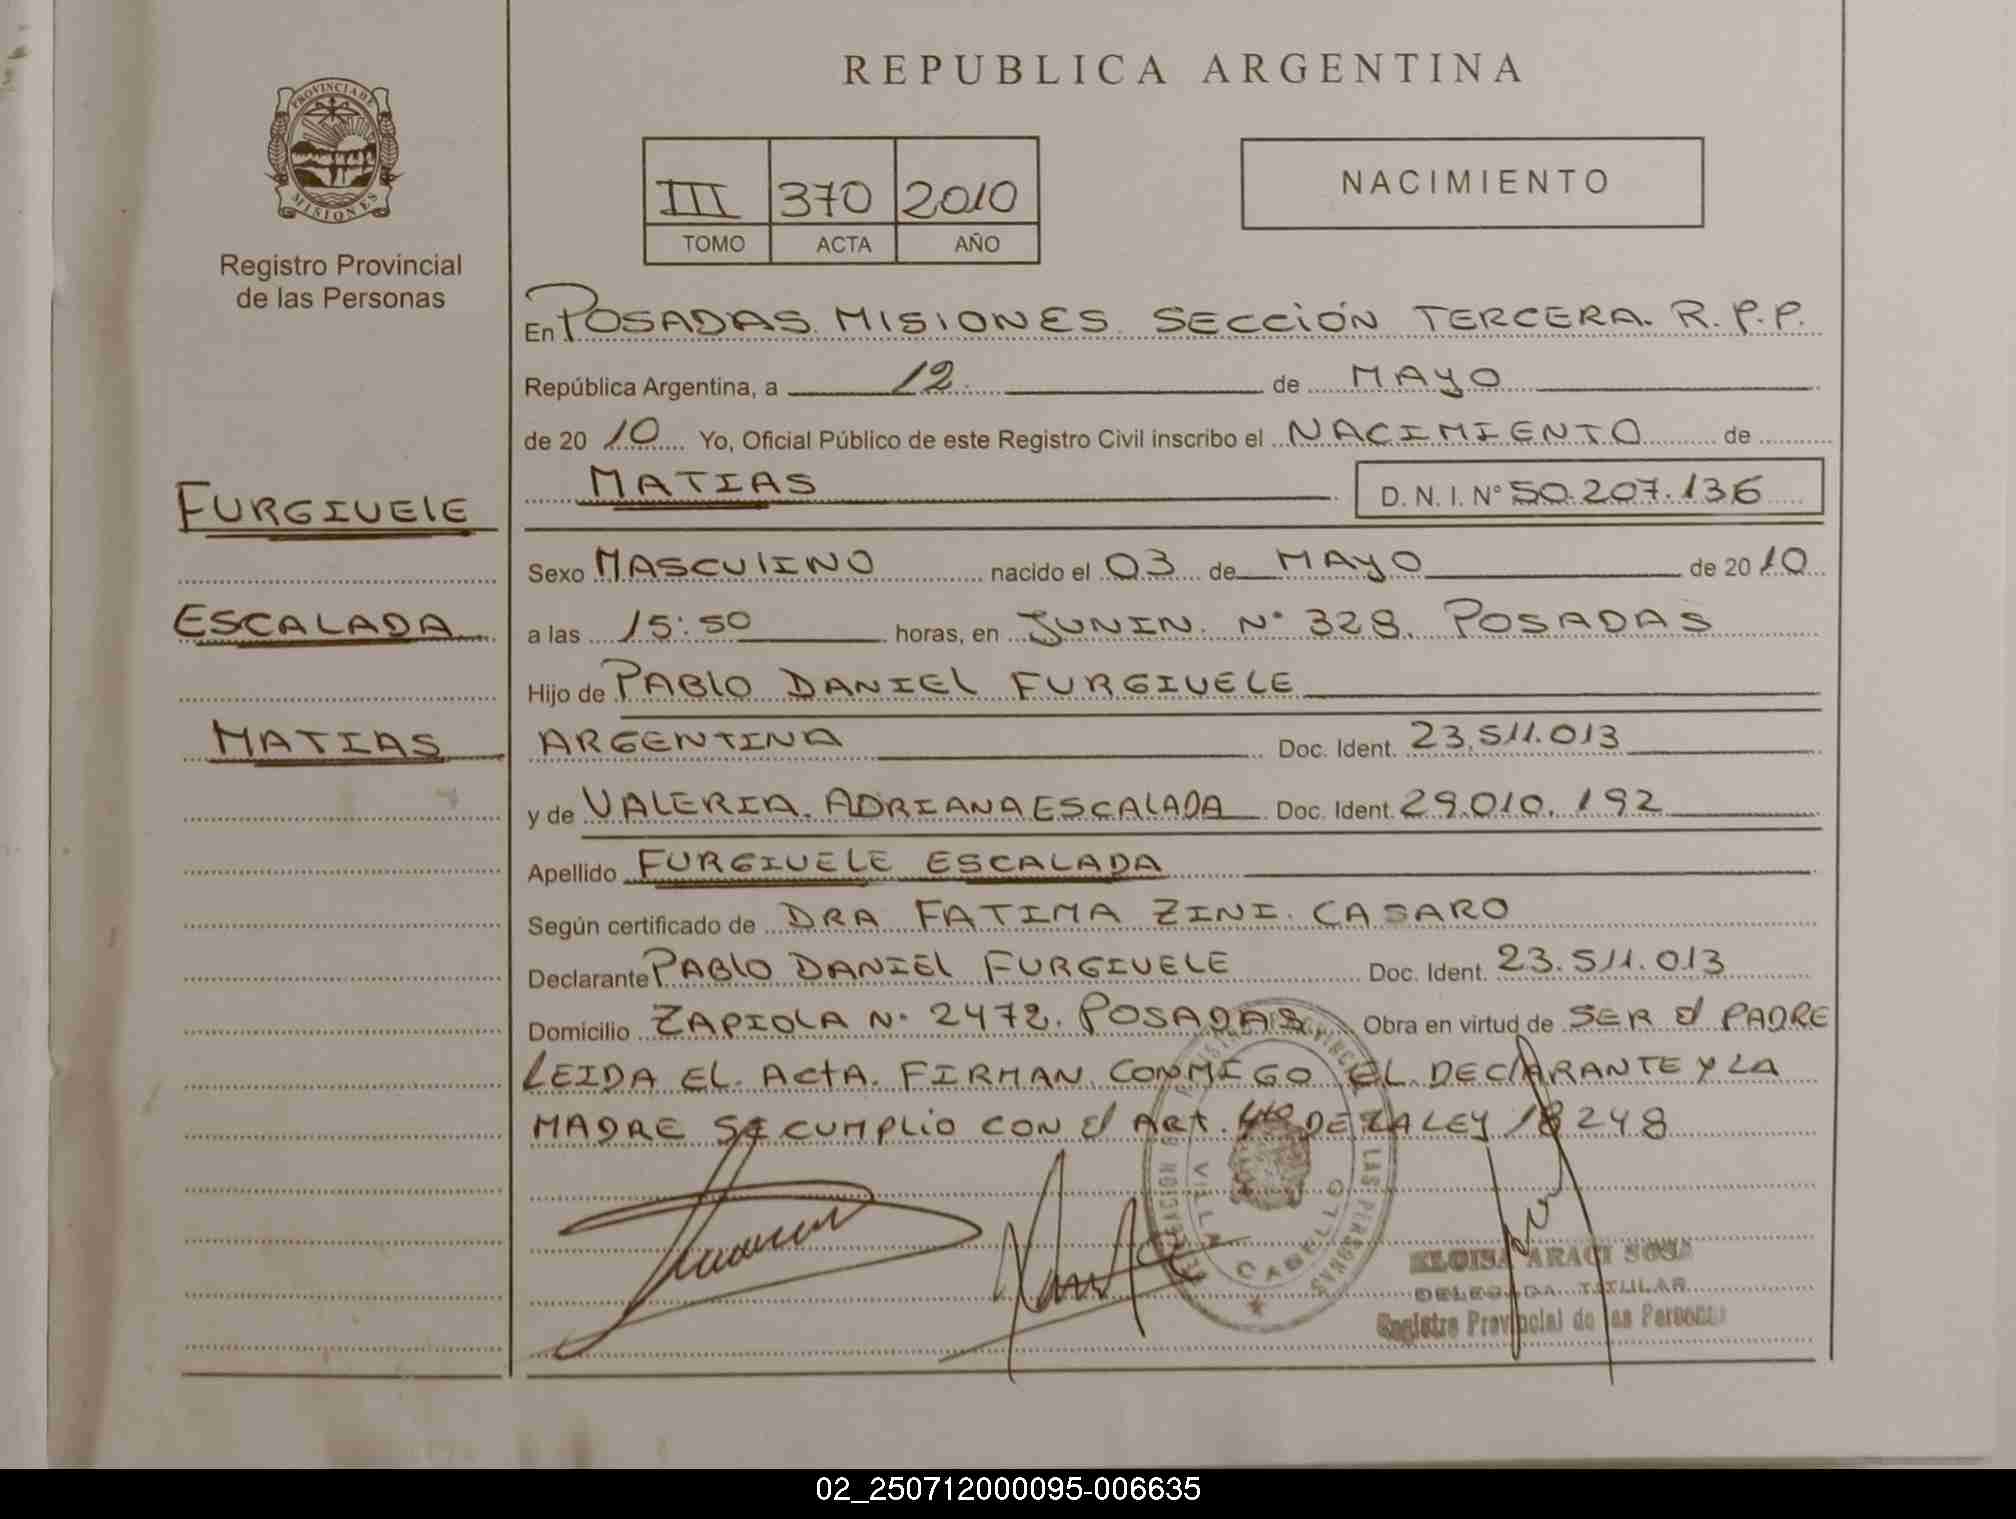 REPUBLICA ARGENTINA
PROVINCIA DE
MISIONES
Registro Provincial
de las Personas
III 370 2010
TOMO ACTA AÑO
NACIMIENTO
En POSADAS. MISIONES. SECCIÓN TERCERA. R.P.P.
República Argentina, a 12 de MAYO
de 20 10 Yo, Oficial Público de este Registro Civil inscribo el NACIMIENTO de
MATIAS D. N. I. N° 50.207.136
FURGIUELE
Sexo MASCULINO nacido el 03 de MAYO de 20 10
ESCALADA
a las 15:50 horas, en JUNIN. N° 328. POSADAS
Hijo de PABLO DANIEL FURGIUELE
MATIAS
ARGENTINA Doc. Ident. 23.511.013
y de VALERIA. ADRIANA ESCALADA Doc. Ident. 29.010.192
Apellido FURGIUELE ESCALADA
Según certificado de DRA FATIMA ZINI. CASARO
Declarante PABLO DANIEL FURGIUELE Doc. Ident. 23.511.013
Domicilio ZAPIOLA N° 2472. POSADAS Obra en virtud de SER el PADRE
LEIDA EL ACTA. FIRMAN CONMIGO EL DECLARANTE Y LA
MADRE SE CUMPLIO CON el ART. DE LA LEY 18248
VILLA CABELLO
LAS PERSONAS
ELOISA ARACI SOSA
DELEGADA TITULAR
Registro Provincial de las Personas
02_250712000095-006635